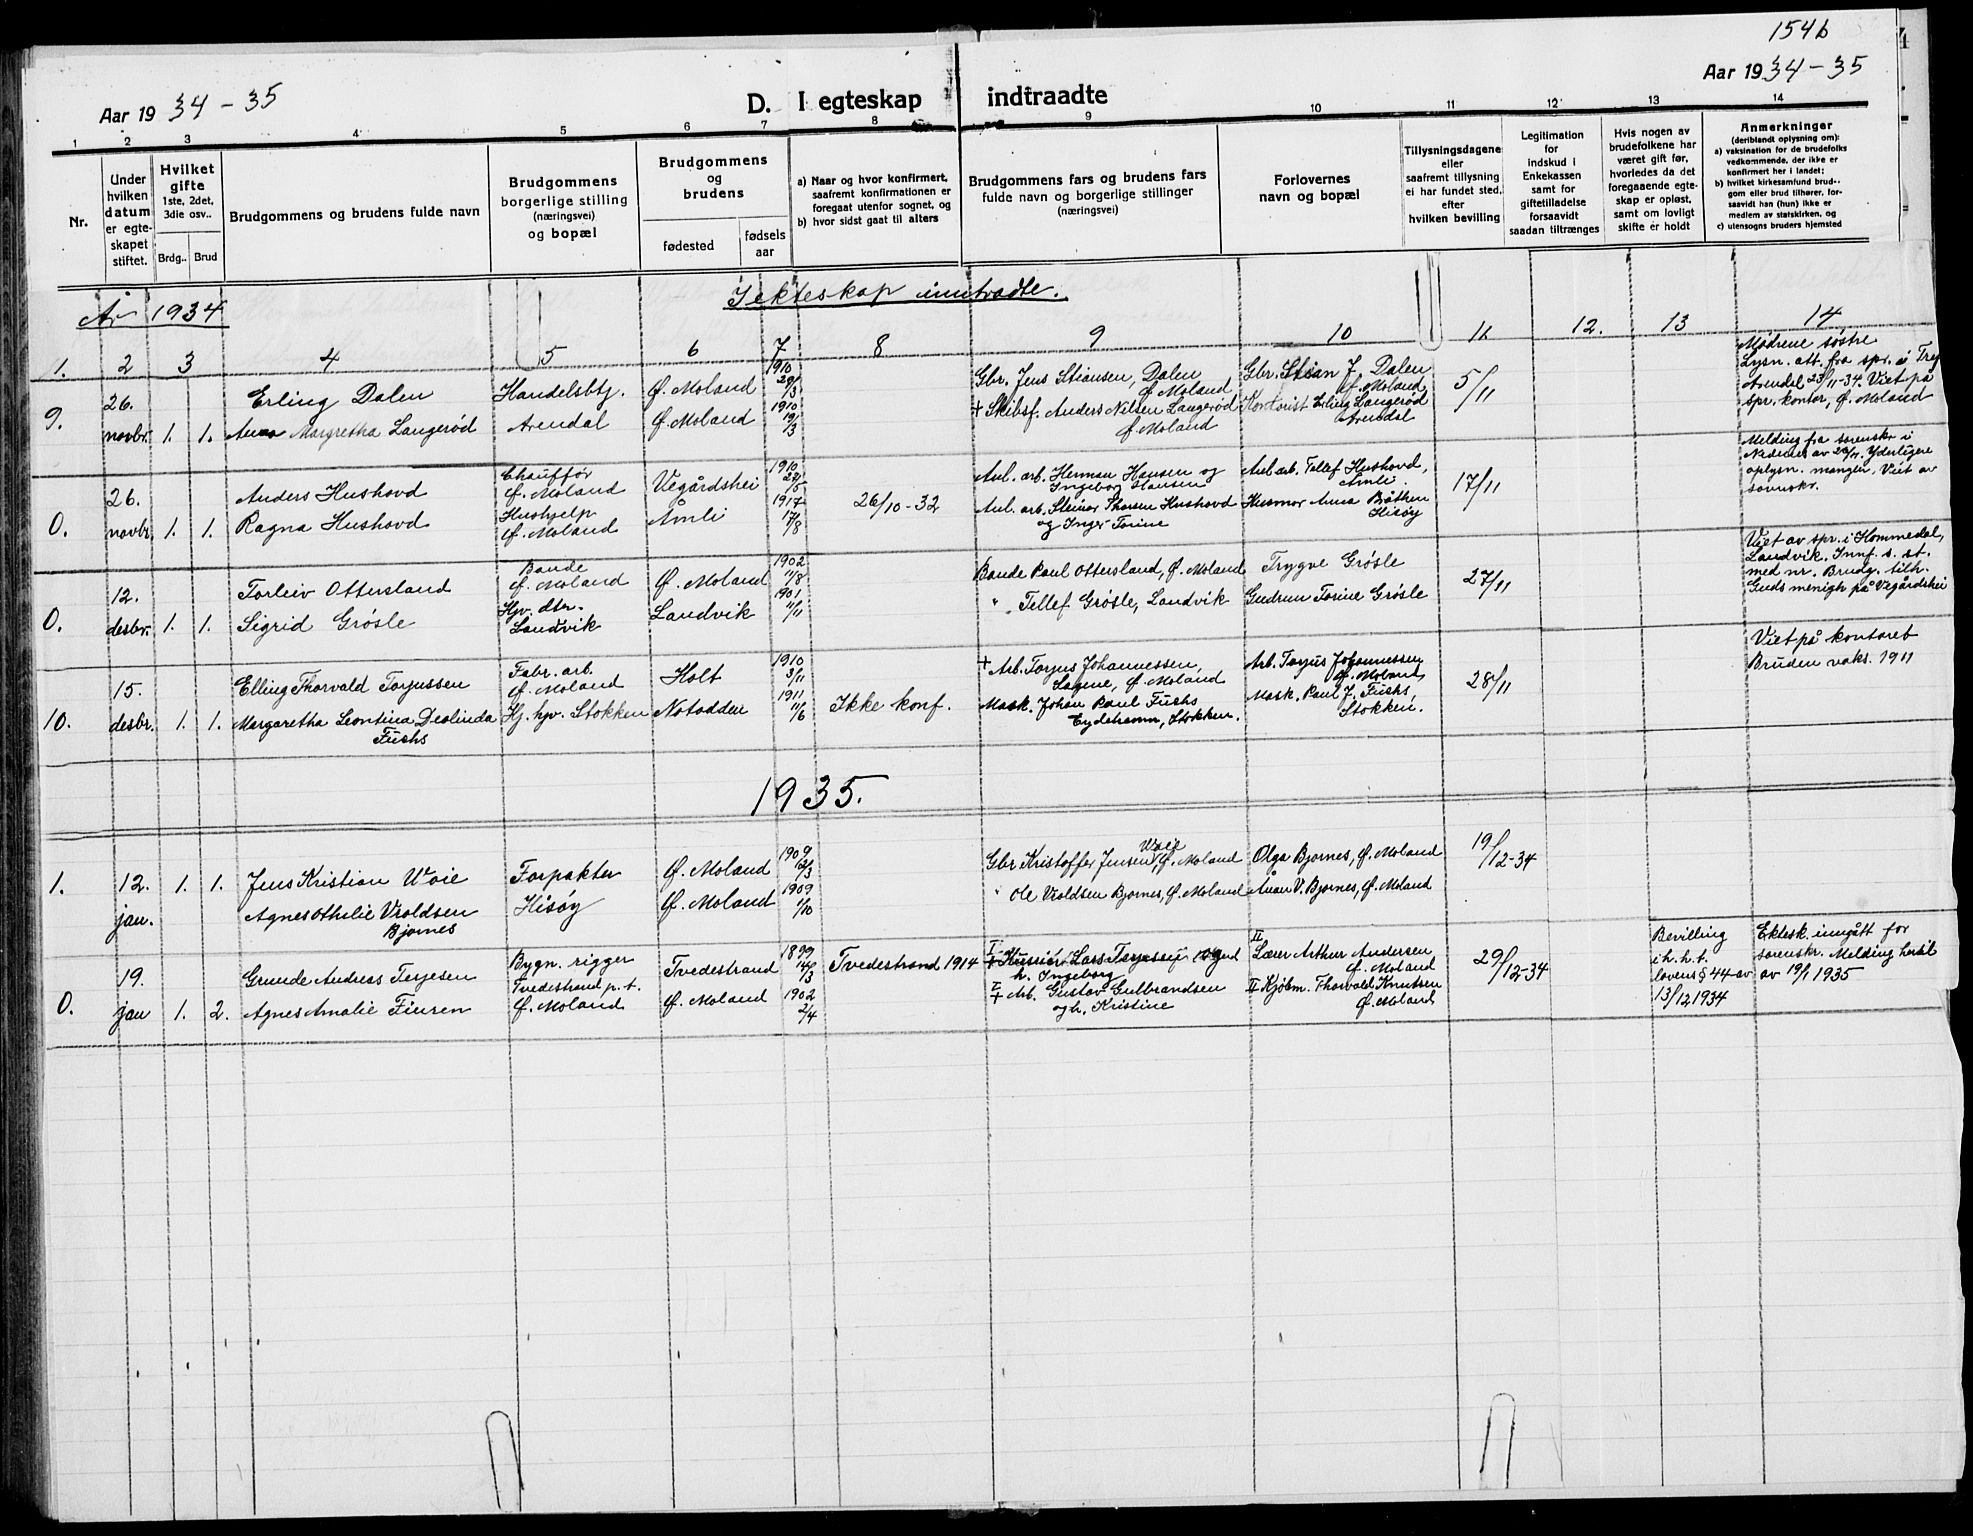 154b
Aar 1934-35
D. I egteskap indtraadte
Aar 1934-35
1 2 3 4 5 6 7 8 9 10 11 12 13 14
Nr.
Under hvilken datum er egteskapet stiftet.
Hvilket gifte 1ste, 2det, 3die osv..
Brdg.. Brud
Brudgommens og brudens fulde navn
Brudgommens borgerlige stilling (næringsvei) og bopæl
Brudgommens og brudens
fødested
fødsels aar
a) Naar og hvor konfirmert, saafremt konfirmationen er foregaat utenfor sognet, og
b) hvor sidst gaat til alters
Brudgommens fars og brudens fars fulde navn og borgerlige stillinger (næringsvei)
Forlovernes navn og bopæl
Tillysningsdagene eller saafremt tillysning ei har fundet sted, efter hvilken bevilling
Legitimation for indskud i Enkekassen samt for giftetilladelse forsaavidt saadan tiltrænges
Hvis nogen av brudefolkene har været gift før, hvorledes da det foregaaende egteskap er opløst, samt om lovligt skifte er holdt
Anmerkninger (deriblandt oplysning om):
a) vaksination for de brudefolks vedkommende, der ikke er konfirmert her i landet;
b) hvilket kirkesamfund brudgom eller brud tilhører, forsaavidt han (hun) ikke er medlem av statskirken, og
c) utensogns bruders hjemsted
År 1934
I ekteskap inntrådte.
1. 2 3 4 5 6 7 8 9 10 11 12. 13 14
9. 26. novbr. 1. 1.
Erling Dalen
Anna Margretha Langerød
Handelsbtj.
Arendal
Ø. Moland
Ø. Moland
1910 29/3
1910 19/3
Gbr. Jens Stiansen, Dalen
Ø. Moland
+ Skibsf. Anders Nilsen Langerød
Ø. Moland
Gbr. Stian J. Dalen
Ø. Moland
Kontorist Erling Langerød
Arendal
5/11
Mødrene søstre
Lysn. att. fra spr. i Tr.
Arendal 23/11-34. Viet på
spr. kontor, Ø. Moland
0. 26. novbr. 1. 1.
Anders Hushovd
Ragna Hushovd
Chauffør
Ø. Moland
Hushjelp
Ø. Moland
Vegårdshei
Åmli
1910 22/5
1917 17/8
26/10-32
Anl. arb. Herman Hansen og
Ingeborg Hansen
Anl. arb. Steinar Thorsen Hushovd
og Inger Torine
Anl. arb. Tellef Hushovd,
Åmli.
Husmor Anna Bråthen
Hisøy
17/11
Melding fra sorenskr i
Nedenes av 26/11. Yderligere
oplysn. mangler. Viet av
sorenskr.
0. 12. desbr. 1. 1.
Torleiv Ottersland
Sigrid Grøsle
Bonde
Ø. Moland
Hjv. dtr.
Landvik
Ø. Moland
Landvik
1902 11/8
1901 4/11
Bonde Paul Ottersland, Ø. Moland
" Tellef Grøsle, Landvik
Trygve Grøsle
Gudrun Torine Grøsle
27/11
Viet av spr. i Hommedal,
Landvik. Innf. s. st.
med nr. Brudg. tilh.
Guds menigh på Vegårdshei
10. 15. desbr. 1. 1.
Elling Thorvald Torjussen
Margaretha Leontina Deolinda
Fuchs
Fabr. arb.
Ø. Moland
Hj. hjv. Stokken
Holt
Notodden
1910 3/11
1911 11/6
Ikke konf.
+ Arb. Torjus Johannessen,
Sagene, Ø. Moland
Mask. Johan Paul Fuchs
Eydehamn, Stokken.
Arb. Torjus Johannessen
Ø. Moland
Mask. Paul J. Fuchs,
Stokken.
28/11
Viet på kontoret
Bruden vaks. 1911
1935.
1. 12. jan. 1. 1.
Jens Kristian Woie
Agnes Othelie Vroldsen
Bjornes
Forpakter
Hisøy
Ø. Moland
Ø. Moland
1909 12/3
1909 1/10
Gbr Kristoffer Jensen Woie, Ø. Moland
" Ole Vroldsen Bjornes, Ø. Moland
Olga Bjornes, Ø. Moland
Anan V. Bjornes, Ø. Moland
19/12-34
0. 19. jan 1. 2.
Grunde Andreas Terjesen
Agnes Amalie Finren
Bygn. rigger
Tvedestrand p. t.
Ø. Moland
Tvedestrand
Ø. Moland
1899 14/3
1902 2/4
Tvedestrand 1914
I Lars Terjesen og
h. Ingeborg
I + Arb. Gustav Gulbrandsen
og h. Kristine
II Lærer Arthur Andersen
Ø. Moland
II Kjøbm. Thorvald Knutsen
Ø. Moland
29/12-34
Bevilling
i h. h. t.
lovens § 44 av
13/12 1934
Ektesk. inngått for
sorenskr. Melding hertil
av 19/1 1935